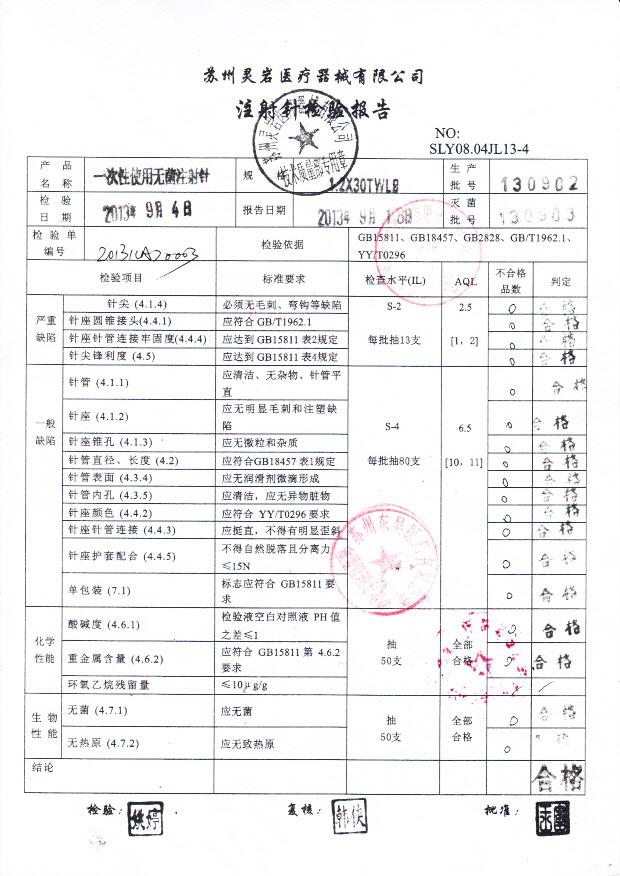 苏州灵岩医疗器械有限公司
注射针检验报告
NO:
SLY08.04JL13-4
产 品 名 称 一次性使用无菌注射针 规 格 1.2X30TW/LB 生 产 批 号 130902
检 验 日 期 2013年 9月 4日 报告日期 2013年 9月 18日 灭 菌 批 号 130903
检 验 单 编号 检验依据 GB15811、GB18457、GB2828、GB/T1962.1、
YY/T0296
检验项目 标准要求 检查水平(IL) AQL 不合格品数 判定
严重缺陷 针尖 (4.1.4) 必须无毛刺、弯钩等缺陷 S-2 2.5 0 合格
针座圆锥接头(4.4.1) 应符合 GB/T1962.1 0 合格
针座针管连接牢固度(4.4.4) 应达到 GB15811 表2规定 每批抽13支 [1, 2] 0 合格
针尖锋利度 (4.5) 应达到 GB15811 表4规定 0 合格
一般缺陷 针管 (4.1.1) 应清洁、无杂物、针管平直 0 合格
针座 (4.1.2) 应无明显毛刺和注塑缺陷 S-4 6.5 0 合格
针座锥孔 (4.1.3) 应无微粒和杂质 0 合格
针管直径、长度 (4.2) 应符合GB18457 表1规定 每批抽80支 [10, 11] 0 合格
针管表面 (4.3.4) 应无润滑剂微滴形成 0 合格
针管内孔 (4.3.5) 应清洁，应无异物脏物 0 合格
针座颜色 (4.4.2) 应符合 YY/T0296 要求 0 合格
针座针管连接 (4.4.3) 应挺直，不得有明显歪斜 0 合格
针座护套配合 (4.4.5) 不得自然脱落且分离力≤15N 0 合格
单包装 (7.1) 标志应符合 GB15811 要求 0 合格
化学性能 酸碱度 (4.6.1) 检验液空白对照液 PH 值之差≤1 抽 50支 全部合格 0 合格
重金属含量 (4.6.2) 应符合 GB15811 第 4.6.2 要求 0 合格
环氧乙烷残留量 ≤10μg/g / /
生 物 性 能 无菌 (4.7.1) 应无菌 抽 50支 全部合格 0 合格
无热原 (4.7.2) 应无致热原 0 合格
结论 合格
检验： 复核： 批准：
苏州灵岩医疗器械有限公司
技术质量部专用章